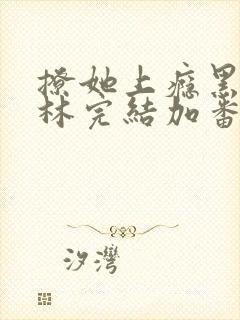 撩她上癮黑
林完結加番
汐灣